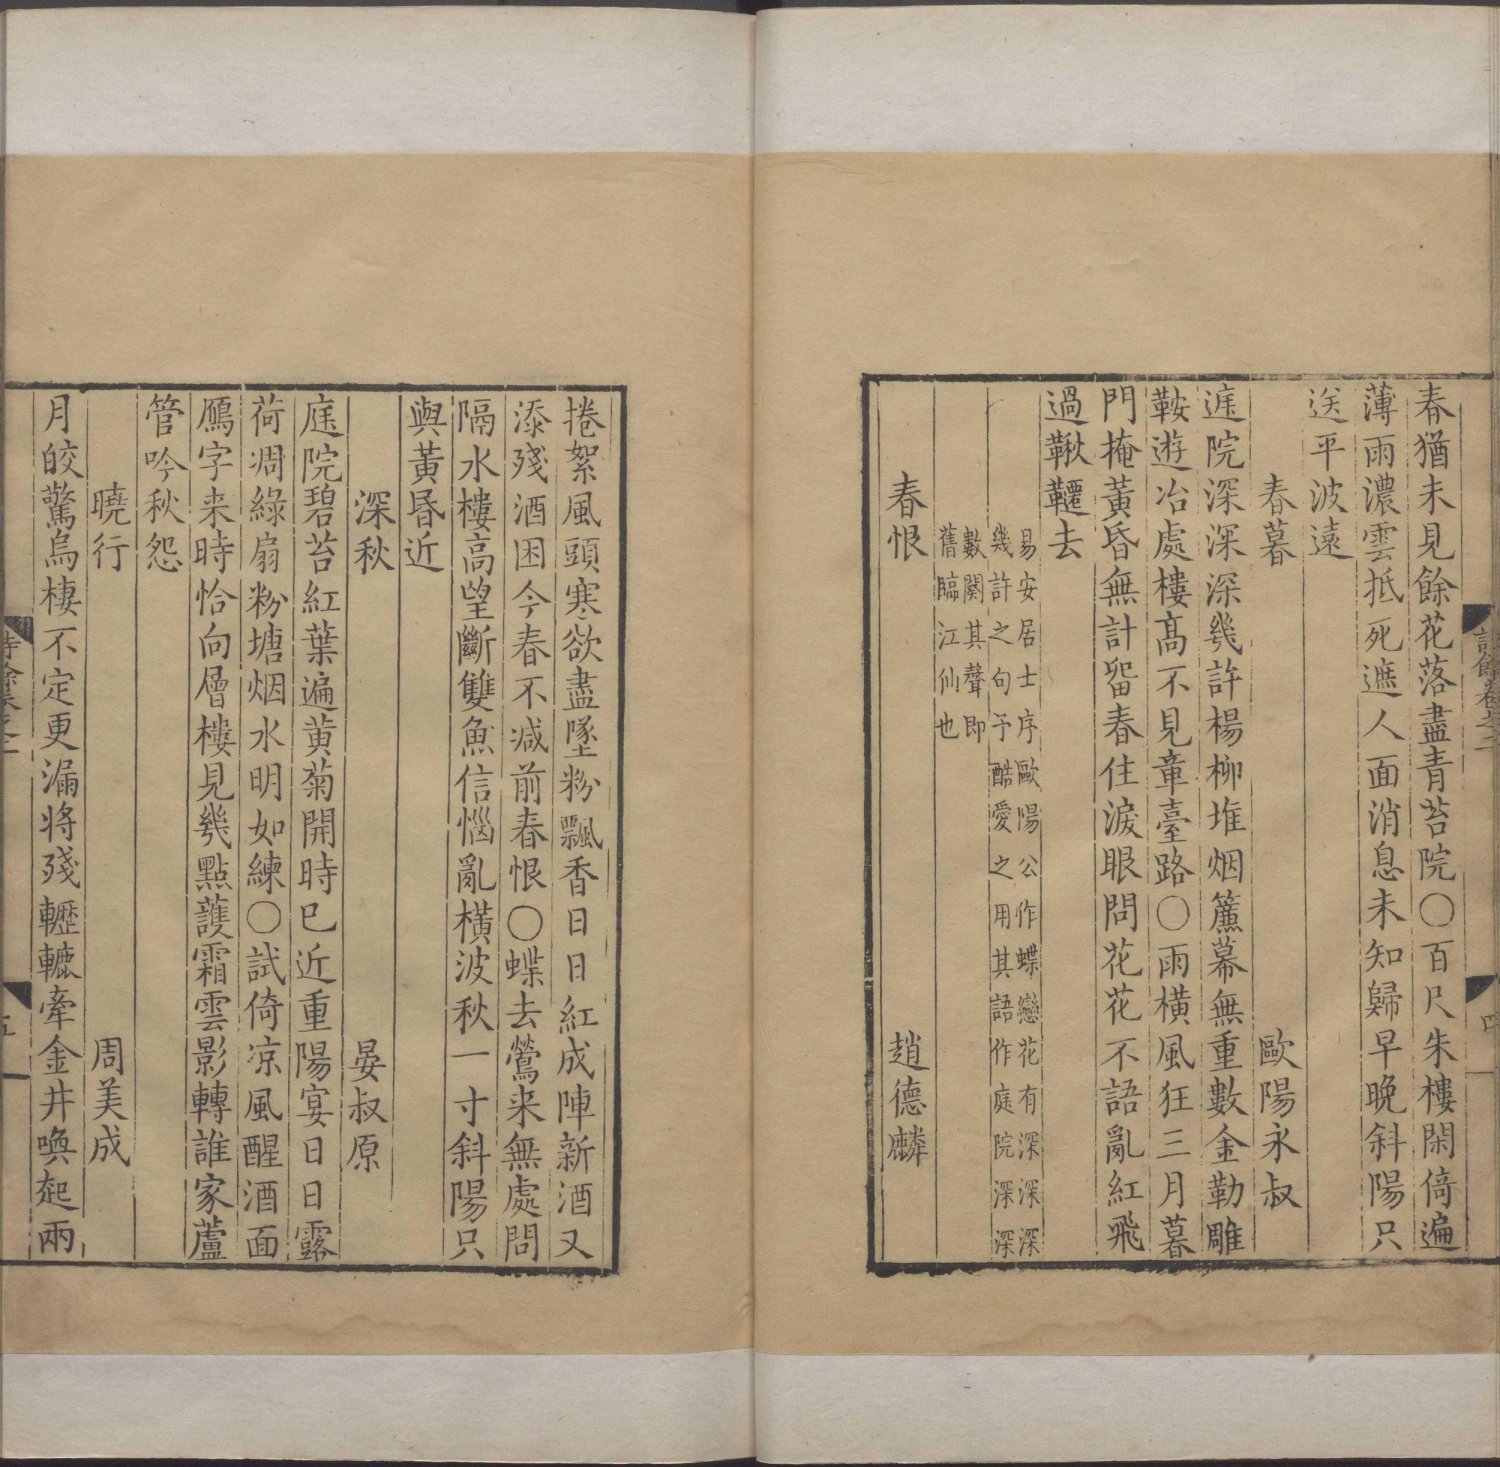 春猶未見餘花落盡青苔院〇百尺朱樓閑倚遍
薄雨濃雲抵死遮人面消息未知歸早晚斜陽只
送平波遠
春暮　歐陽永叔
庭院深深深幾許楊柳堆烟簾幕無重數金勒雕
鞍遊冶處樓高不見章臺路〇雨橫風狂三月暮
門掩黃昏無計留春住淚眼問花花不語亂紅飛
過鞦韆去
易安居士序歐陽公作蝶戀花有深深深
幾許之句予酷愛之用其語作庭院深深
數闋其聲即
舊臨江仙也
春恨　趙德麟
捲絮風頭寒欲盡墜粉飄香日日紅成陣新酒又
添殘酒困今春不減前春恨〇蝶去鶯来無處問
隔水樓高望斷雙魚信惱亂橫波秋一寸斜陽只
與黃昏近
深秋　晏叔原
庭院碧苔紅葉遍黃菊開時已近重陽宴日日露
荷凋綠扇粉塘烟水明如練〇試倚凉風醒酒面
鴈字来時恰向層樓見幾點護霜雲影轉誰家蘆
管吟秋怨
曉行　周美成
月皎驚烏棲不定更漏将殘轣轆牽金井喚起兩